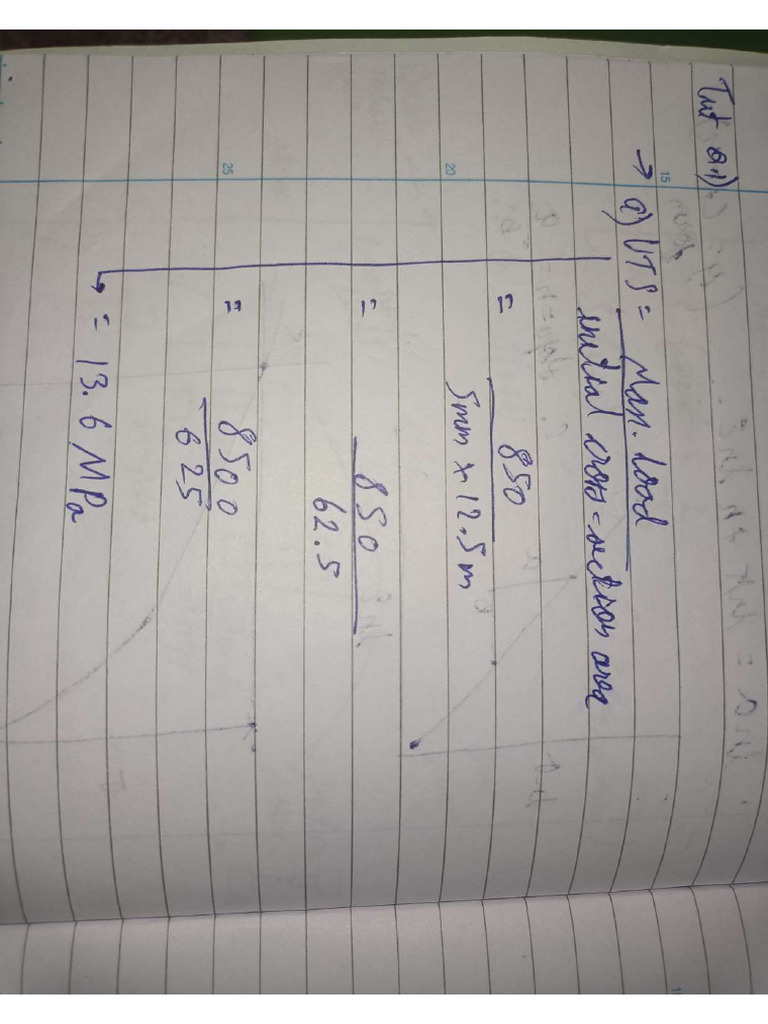 Tut Q1)
→ a) UTS = Max. Load
initial cross-section area
= 850
5mm × 12.5m
= 850
62.5
= 8500
625
= 13.6 MPa
15
20
25